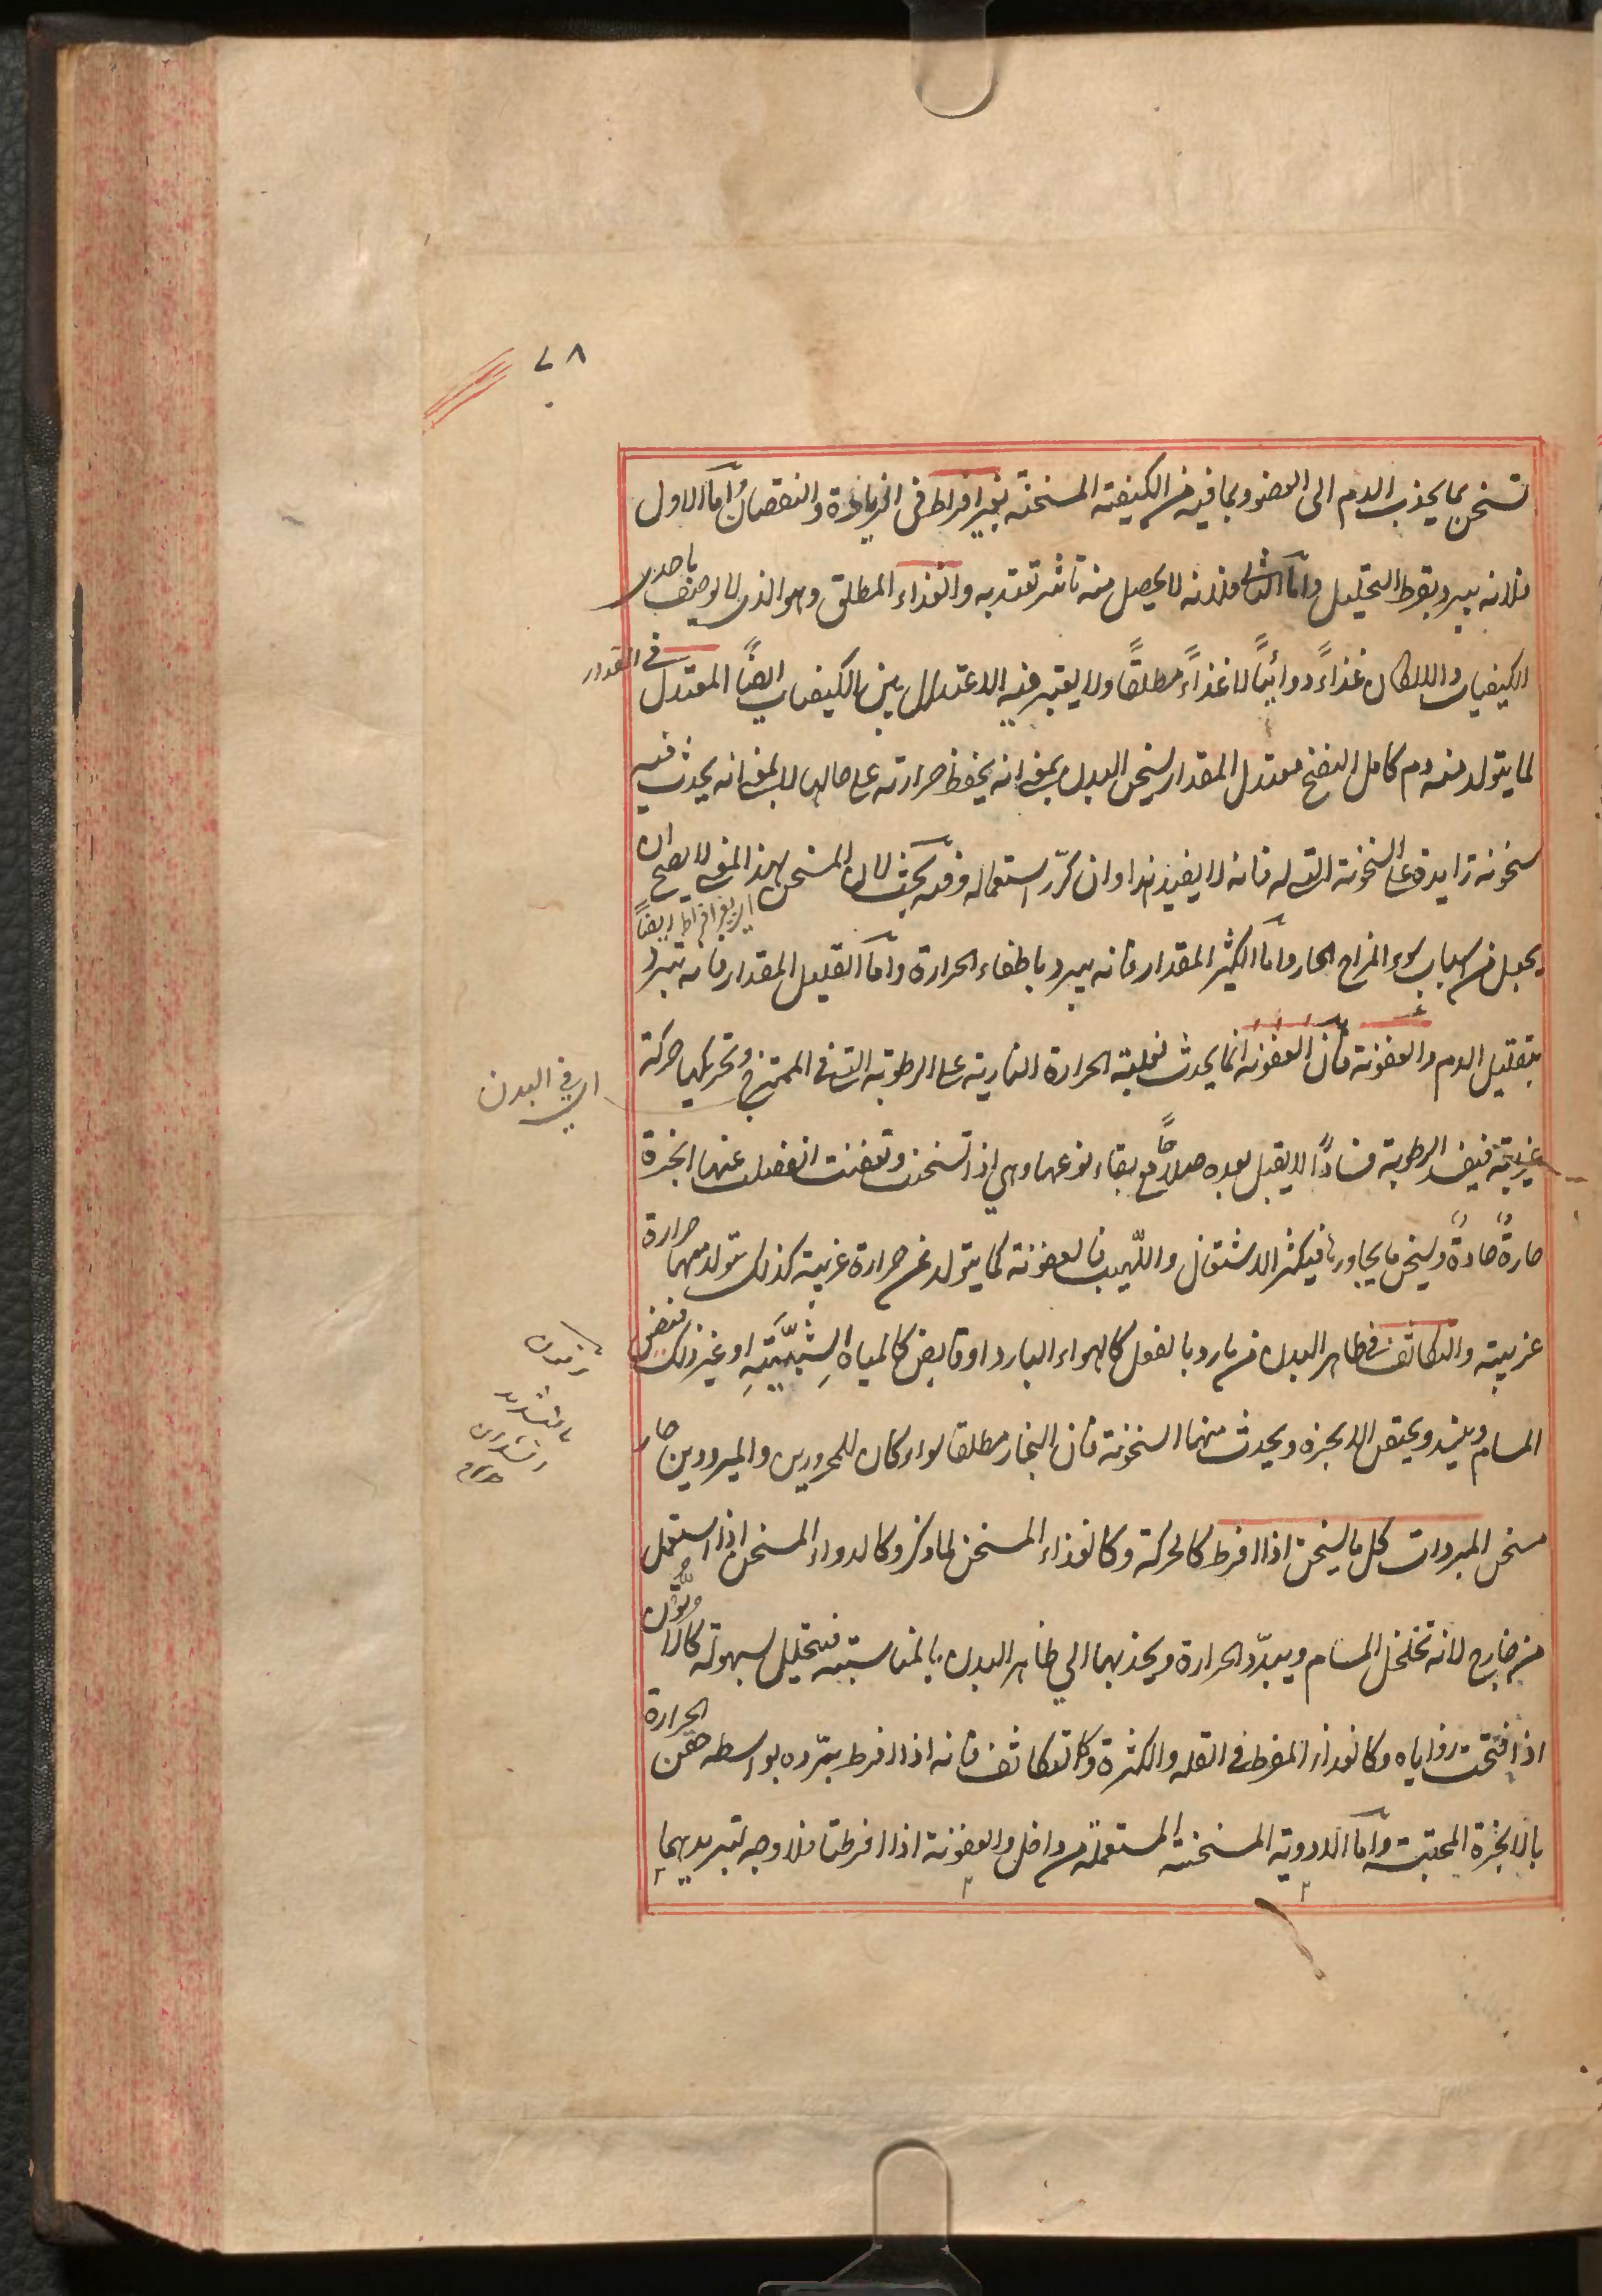 ٧٨
تسخن بما يجذب الدم الى العضو وبما فيه من الكيفية المسخنة بغير افراط فى الزيادة والنقصان اما الاول
فلانه يبرد بفرط التحليل واما الثانى فلانه لا يحصل منه تاثير يعتد به والغذاء المطلق وهو الذى لا يوصف باحدى
الكيفيات والا لكان غذاءً دوائياً لا غذاءً مطلقاً ولا يعتبر فيه الاعتدال بين الكيفيات ايضاً المعتدل فى المقدار
لما يتولد منه دم كامل النضج معتدل المقدار يسخن البدن بمعنى انه يحفظ حرارته على حالها لا بمعنى انه يحدث فيه
سخونة زايدة على السخونة التى له فانه لا يفيد هذا وان كرّر استعماله وفيه بحث لان المسخن بهذا المعنى لا يصح ان
يجعل من اسباب سوء المزاج الحار واما الكثير المقدار فانه يبرد باطفاء الحرارة واما القليل المقدار فانه يبرد
اى بغير افراط ايضاً
بتقليل الدم والعفونة فان العفونة انما يحدث لغلبة الحرارة النارية على الرطوبة التى فى الممتزج وتحريكها حركة
اى فى البدن
غريبة فيفسد الرطوبة فساداً لا يقبل بعده صلاحاً مع بقاء نوعها وهى اذا تسخنت وتعفنت انفصلت عنها ابخرة
حارةً حادةً ويسخن ما يجاورها فيكثر الاشتعال واللّهيب فالعفونة كما يتولد عن حرارة غريبة كذلك يتولد منها حرارة
غريبة والتكاثف فى ظاهر البدن من بارد بالفعل كالهواء البارد او قابض كالمياه الشِّبِّيَّةِ او غير ذلك فيضيق
المسام وينسد ويحتقن الابخرة ويحدث منها السخونة فان البخار مطلقا سواء كان للمحرورين والمبرودين حار
مسخن المبردات كل ما يسخن اذا افرط كالحركة وكالغذاء المسخن لما ذكر وكالدواء المسخن اذا استعمل
من خارج لانه تخلخل المسام ويبدّد الحرارة ويجذبها الي ظاهر البدن بالمناسبة فيتحلل بسهولة كالاتّون
اذا فتحت زواياه وكالغذاء المفرط فى القلة والكثرة وكالتكاثف فانه اذا افرط يبرّده بواسطه حقن الحرارة
بالابخرة المحتبسة واما الادوية المسخنة المستعملة من داخل والعفونة اذا افرطتا فلا وجه لتبريدهما